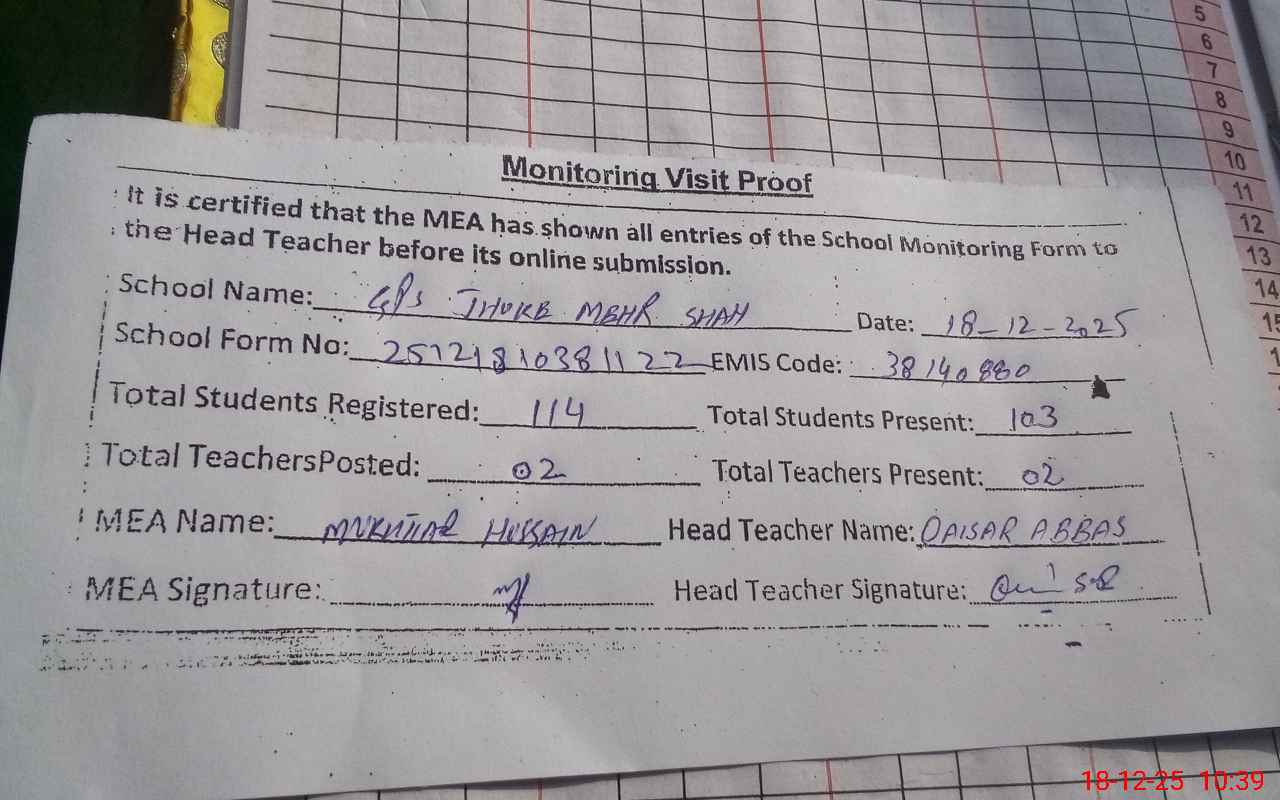 5
6
7
8
9
10
11
12
13
14
Monitoring Visit Proof
It is certified that the MEA has shown all entries of the School Monitoring Form to
the Head Teacher before its online submission.
School Name: GPS JHOKE MEHR SHAH Date: 18-12-2025
School Form No: 25121810381122 EMIS Code: 38140880
Total Students Registered: 114 Total Students Present: 103
Total TeachersPosted: 02 Total Teachers Present: 02
MEA Name: MUKHTIAR HUSSAIN Head Teacher Name: QAISAR ABBAS
MEA Signature: Head Teacher Signature:
18-12-25 10:39